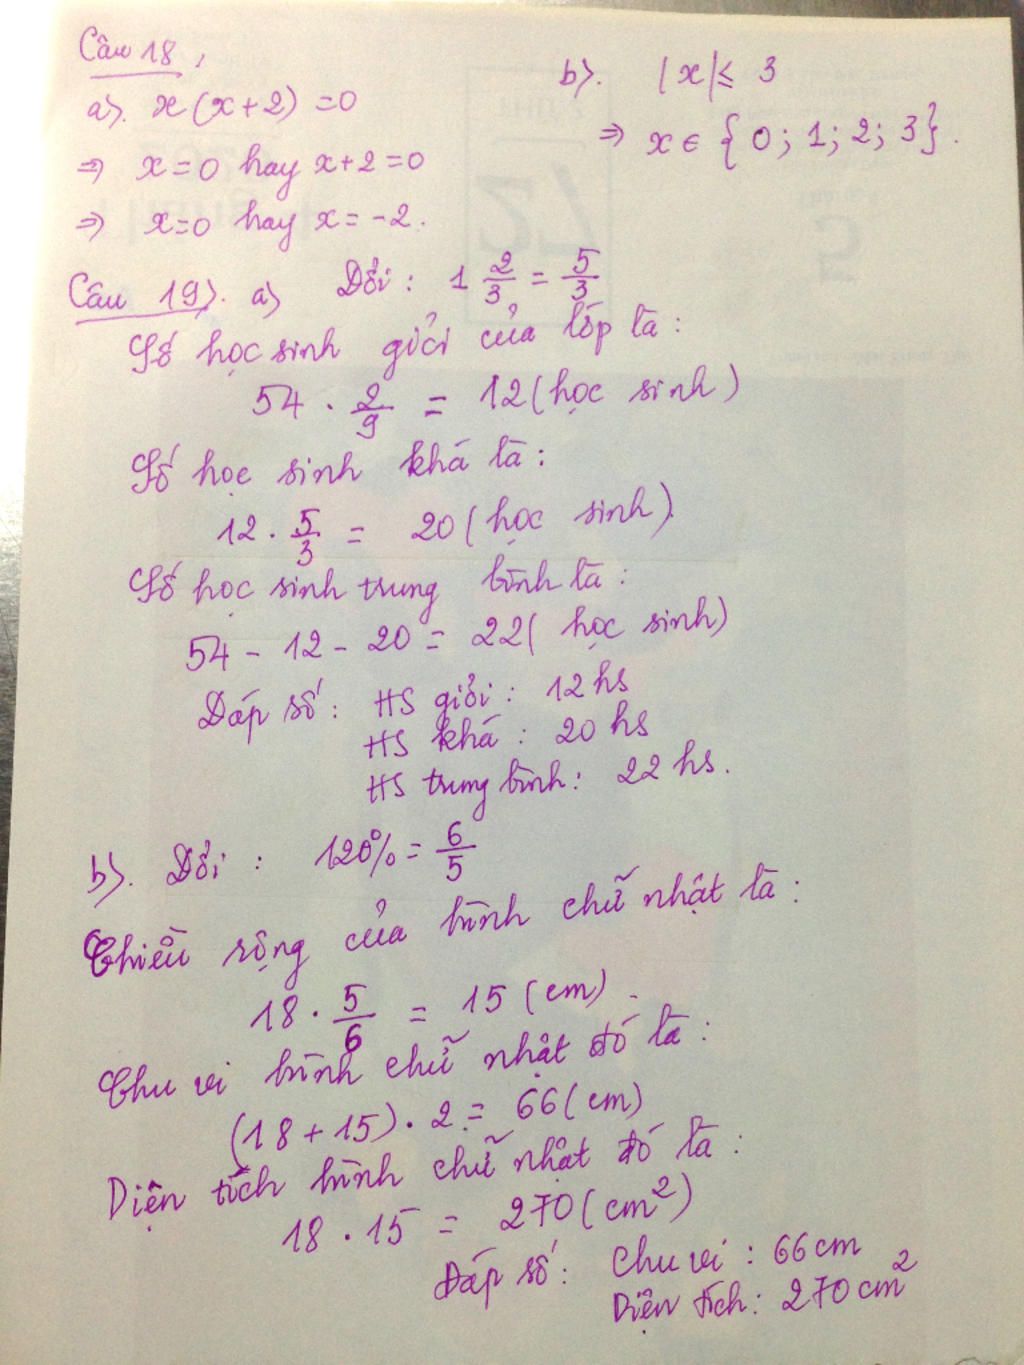 Câu 18,
a). x(x+2) = 0
⇒ x = 0 hay x+2 = 0
⇒ x = 0 hay x = -2.
b). |x| ≤ 3
⇒ x ∈ {0; 1; 2; 3}.
Câu 19). a) Đổi: 1 2/3 = 5/3
Số học sinh giỏi của lớp là:
54 . 2/9 = 12 (học sinh)
Số học sinh khá là:
12 . 5/3 = 20 (học sinh).
Số học sinh trung bình là:
54 - 12 - 20 = 22 (học sinh)
Đáp số: HS giỏi: 12 hs
HS khá: 20 hs
HS trung bình: 22 hs.
b). Đổi: 120% = 6/5
Chiều rộng của hình chữ nhật là:
18 . 5/6 = 15 (cm).
Chu vi hình chữ nhật đó là:
(18 + 15) . 2 = 66 (cm)
Diện tích hình chữ nhật đó là:
18 . 15 = 270 (cm²)
Đáp số: Chu vi: 66 cm
Diện tích: 270 cm²